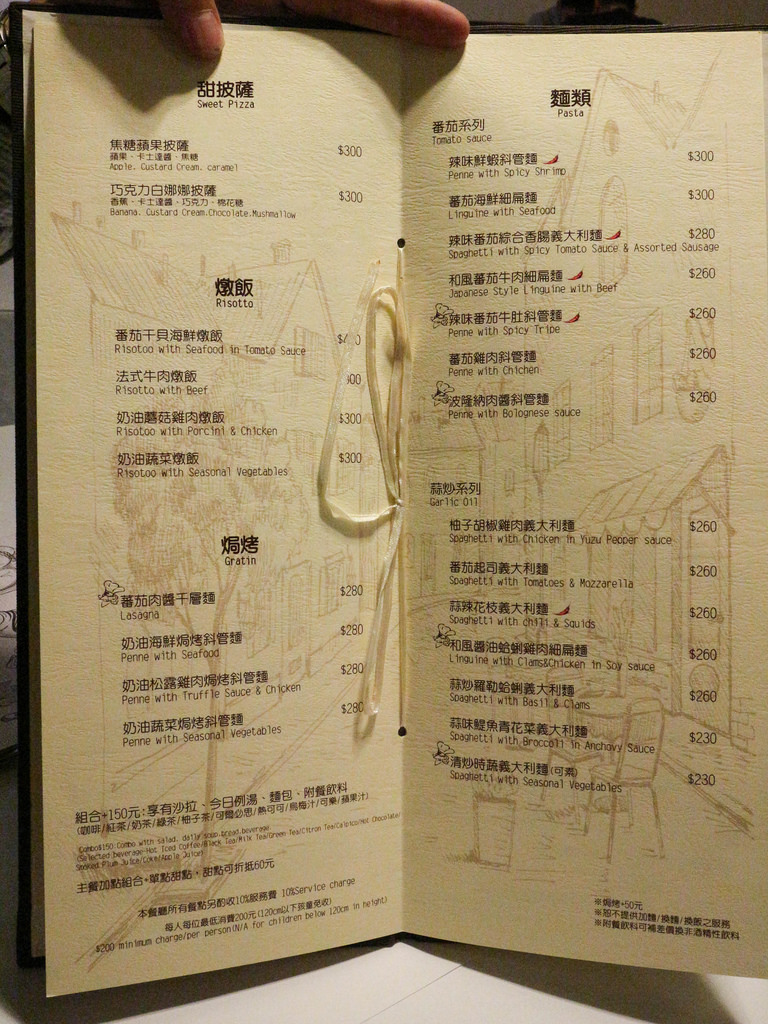 甜披薩
Sweet Pizza
焦糖蘋果披薩 $300
蘋果、卡士達醬、焦糖
Apple. Custard Cream. caramel
巧克力白娜娜披薩 $300
香蕉、卡士達醬、巧克力、棉花糖
Banana. Custard Cream.Chocolate.Mushmallow
燉飯
Risotto
番茄干貝海鮮燉飯
Risotoo with Seafood in Tomato Sauce
法式牛肉燉飯
Risotto with Beef
奶油蘑菇雞肉燉飯 $300
Risotoo with Porcini & Chicken
奶油蔬菜燉飯 $300
Risotoo with Seasonal Vegetables
焗烤
Gratin
番茄肉醬千層麵 $280
Lasagna
奶油海鮮焗烤斜管麵 $280
Penne with Seafood
奶油松露雞肉焗烤斜管麵 $280
Penne with Truffle Sauce & Chicken
奶油蔬菜焗烤斜管麵 $280
Penne with Seasonal Vegetables
組合+150元:享有沙拉、今日例湯、麵包、附餐飲料
(咖啡/紅茶/奶茶/綠茶/柚子茶/可爾必思/熱可可/烏梅汁/可樂/蘋果汁)
Combo$150:Combo with salad. daily soup.bread.beverage
(Selected beverage-Hot Iced Coffee/Black Tea/Milk Tea/Green Tea/Citron Tea/Calpics/Hot Chocolate/
Smoked Plum Juice/Coke/Apple Juice)
主餐加點組合+單點甜點，甜點可折抵60元
本餐廳所有餐點另酌收10%服務費 10%Service charge
每人每位最低消費200元(120cm以下孩童免收)
$200 minimum charge/per person(N/A for children below 120cm in height)
麵類
Pasta
番茄系列
Tomato sauce
辣味鮮蝦斜管麵 $300
Penne with Spicy Shrimp
番茄海鮮細扁麵 $300
Linguine with Seafood
辣味番茄綜合香腸義大利麵 $280
Spaghetti with Spicy Tomato Sauce & Assorted Sausage
和風番茄牛肉細扁麵 $260
Japanese Style Linguine with Beef
辣味番茄牛肚斜管麵 $260
Penne with Spicy Tripe
番茄雞肉斜管麵 $260
Penne with Chichen
波隆納肉醬斜管麵 $260
Penne with Bolognese sauce
蒜炒系列
Garlic Oil
柚子胡椒雞肉義大利麵 $260
Spaghetti with Chicken in Yuzu Pepper sauce
番茄起司義大利麵 $260
Spaghetti with Tomatoes & Mozzarella
蒜辣花枝義大利麵 $260
Spaghetti with chili & Squids
和風醬油蛤蜊雞肉細扁麵 $260
Linguine with Clams&Chicken in Soy sauce
蒜炒羅勒蛤蜊義大利麵 $260
Spaghetti with Basil & Clams
蒜味鯷魚青花菜義大利麵 $230
Spaghetti with Broccoli in Anchovy Sauce
清炒時蔬義大利麵(可素) $230
Spaghetti with Seasonal Vegetables
※焗烤+50元
※恕不提供加麵/換麵/換飯之服務
※附餐飲料可補差價換非酒精性飲料